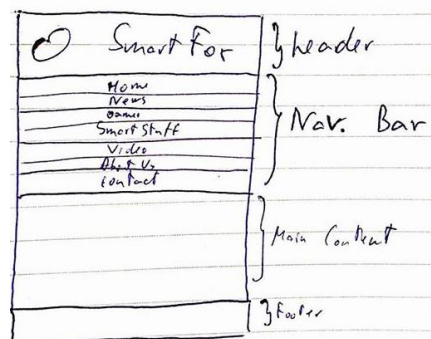 Smart For
Header
Home
News
Games
Smart Stuff
Video
About Us
Contact
Nav. Bar
Main Content
Footer